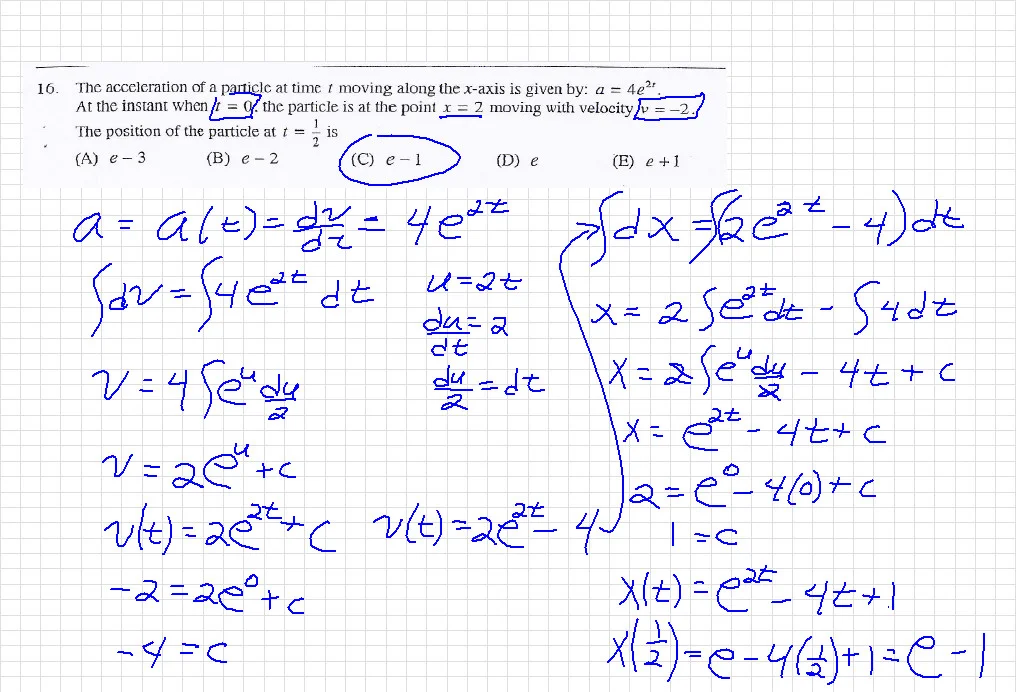 16. The acceleration of a particle at time t moving along the x-axis is given by: a = 4e^{2t}.
At the instant when t = 0, the particle is at the point x = 2 moving with velocity v = −2.
The position of the particle at t = 1/2 is
(A) e − 3 (B) e − 2 (C) e − 1 (D) e (E) e + 1
a = a(t) = dv/dt = 4e^{2t}
∫dv = ∫4e^{2t} dt
u = 2t
du/dt = 2
du/2 = dt
v = 4∫e^u du/2
v = 2e^u + c
v(t) = 2e^{2t} + c
-2 = 2e^0 + c
-4 = c
v(t) = 2e^{2t} - 4
∫dx = ∫(2e^{2t} - 4)dt
x = 2∫e^{2t}dt - ∫4dt
x = 2∫e^u du/2 - 4t + c
x = e^{2t} - 4t + c
2 = e^0 - 4(0) + c
1 = c
x(t) = e^{2t} - 4t + 1
x(1/2) = e - 4(1/2) + 1 = e - 1